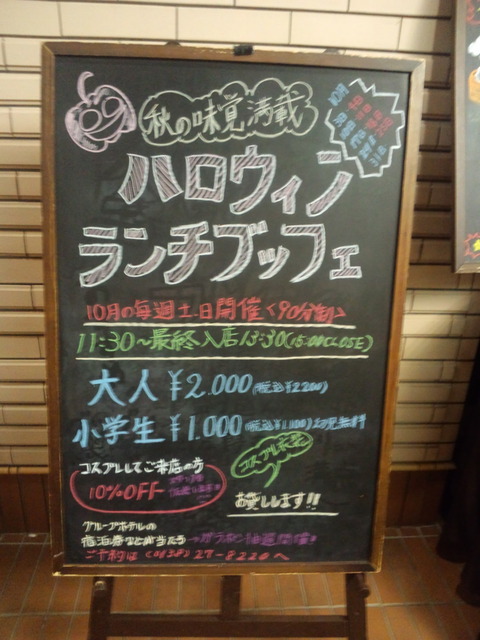 秋の味覚満載
ハロウィン
ランチブッフェ
10月の毎週土・日開催<90分制>
11:30〜最終入店13:30(15:00CLOSE)
大人¥2.000(税込¥2200)
小学生¥1.000(税込¥1.100)幼児無料
コスプレしてご来店の方
10%OFF
コスプレ衣装
お貸しします!!
グループホテルの
宿泊券など が当たる
ご予約は(0838)27-8220へ